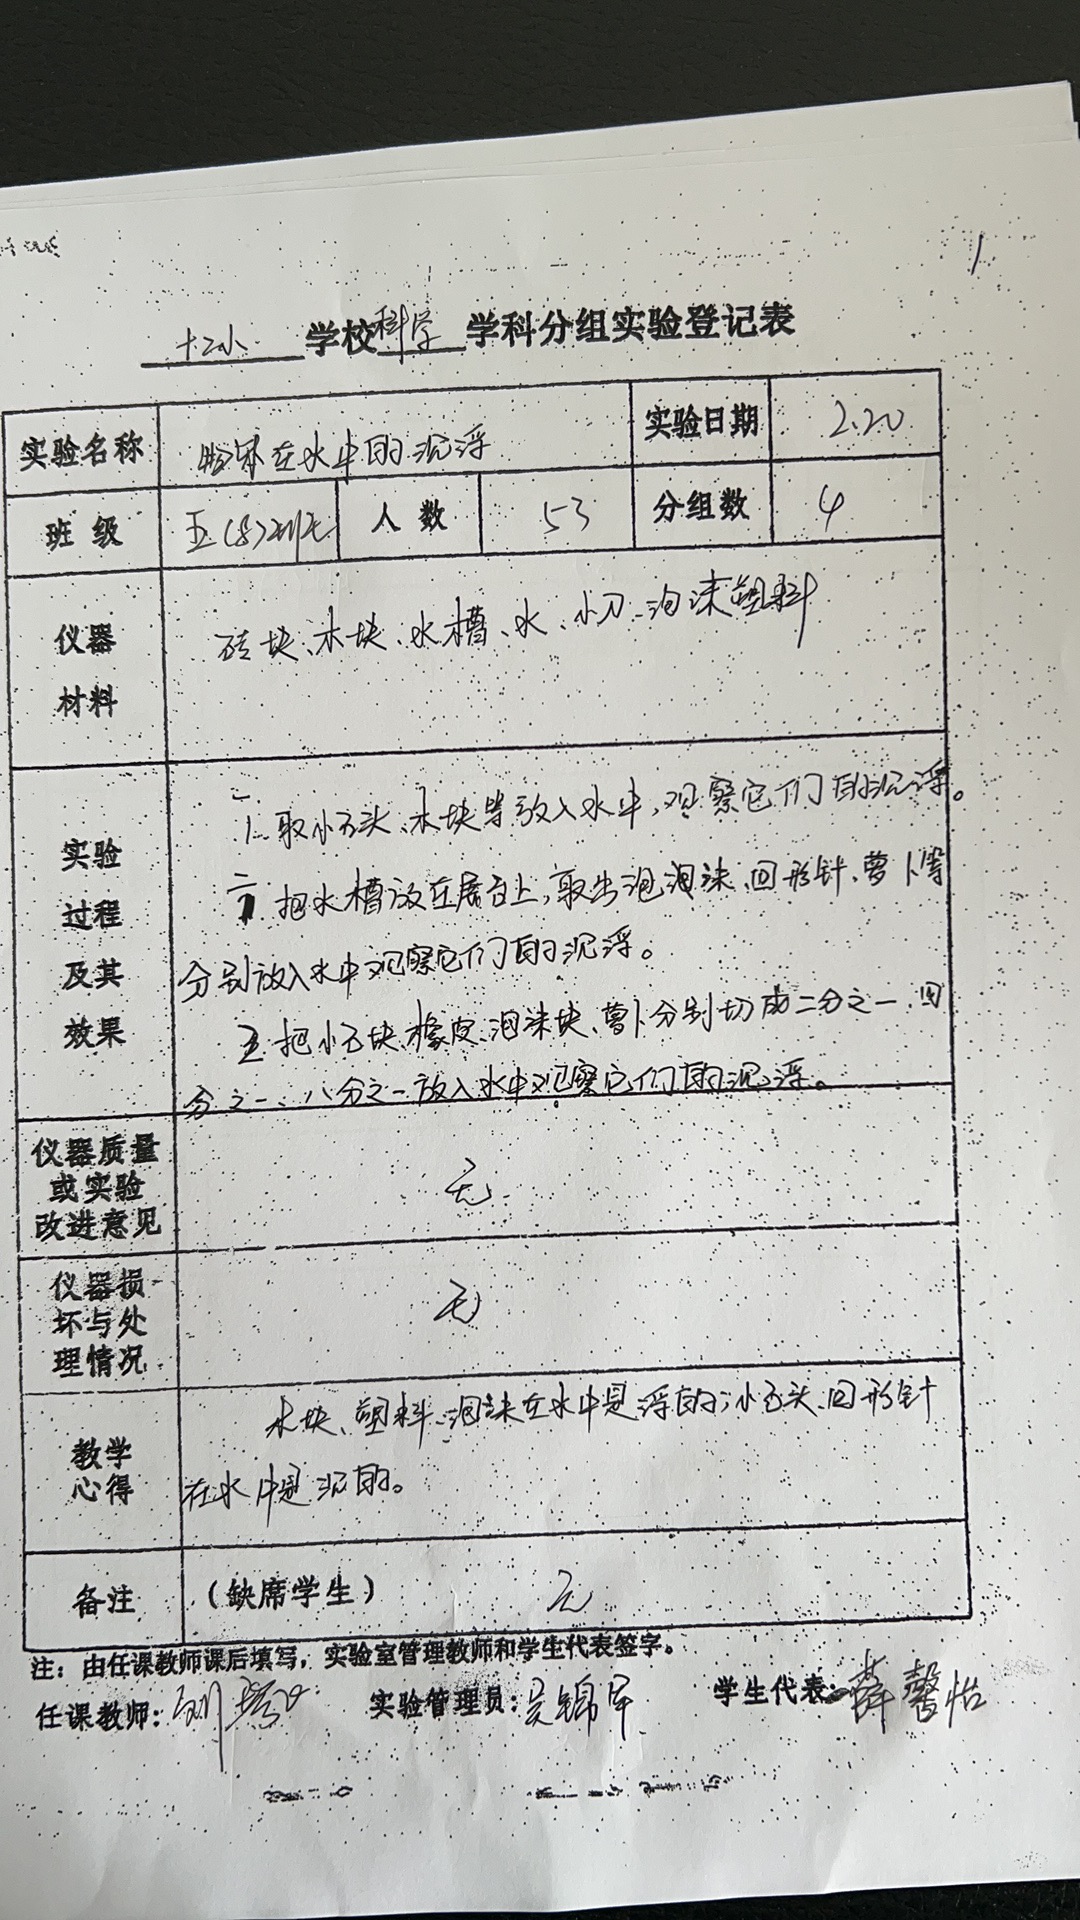 1
十二小 学校 科学 学科分组实验登记表
实验名称 物体在水中的沉浮 实验日期 2.20
班级 五(8)班 人数 53 分组数 4
仪器材料 砖块、木块、水槽、水、小刀、泡沫塑料
实验过程及其效果
一.取小石头、木块等放入水中,观察它们的沉浮。
二.把水槽放在展台上,取出泡泡沫、回形针、萝卜等
分别放入水中观察它们的沉浮。
三把小石块、橡皮、泡沫块、萝卜分别切成二分之一、四
分之一、八分之一放入水中观察它们的沉浮。
仪器质量或实验改进意见 无
仪器损坏与处理情况 无
教学心得 木块、塑料、泡沫在水中是浮的;小石头、回形针
在水中是沉的。
备注 (缺席学生) 无
注:由任课教师课后填写,实验室管理教师和学生代表签字。
任课教师: 实验管理员:吴锦军 学生代表:薛馨怡